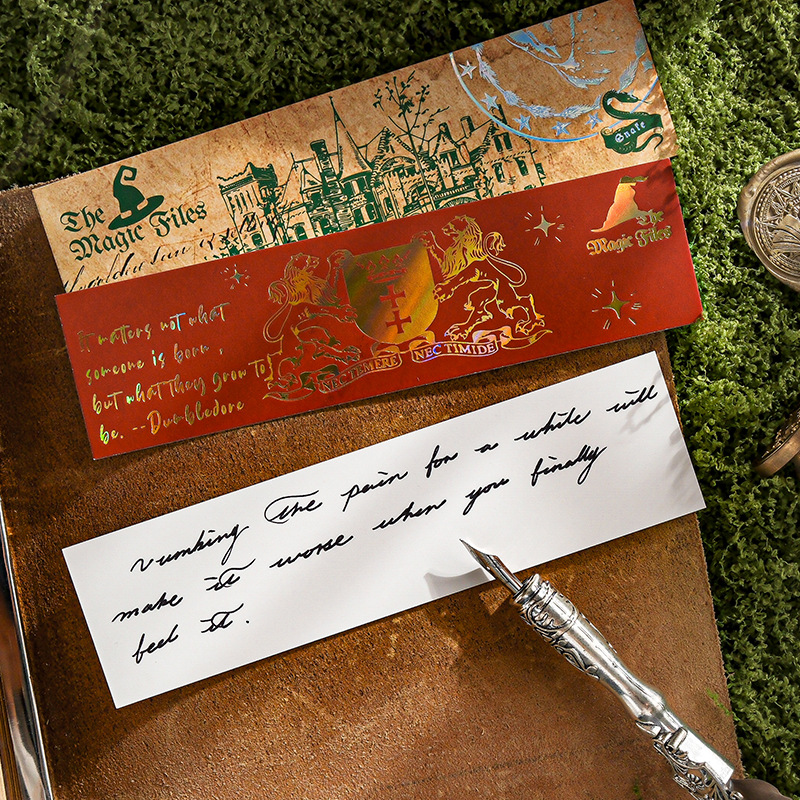 The
Magic Files
Snake
The
Magic Files
It maters not what
someone is born ,
but what they grow to
be. --Dumbledore
NEC TEMERE NEC TIMIDE
numking the pain for a while will
make it worse when you finally
feel it.